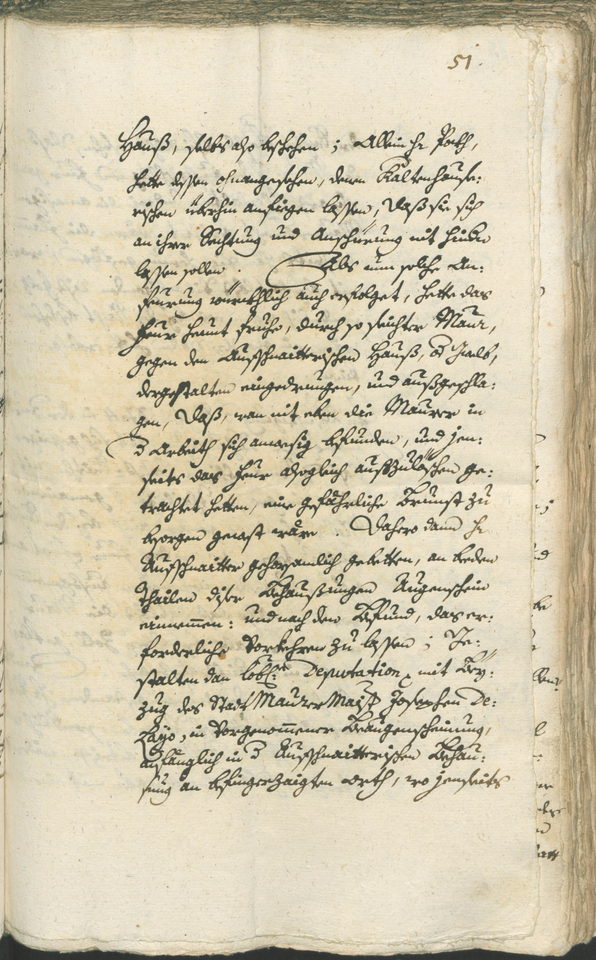 51.
Hauß, selbs also beschehen; Allein H: Poth,
hette dessen ohnangesehen, denen Kaltenhause:
rischen überhin anfiegen lassen, daß sie sich
an ihrer Richtung und Anschürung nit hindern
lassen sollen. Als nun solche An:
feurung würckhlich auch erfolget, hette das
Feur heunt fruhe, durch so seichter Maur,
gegen den Aufschnaitterischen Hauß,
dergestalten eingedrungen, und außgeschla:
gen, daß, wan nit eben die Maurer in
d Arbeith sich anwesig befunden, und jen:
seits das Feur alsogleich aufzulöschen ge:
trachtet hetten, eine gefährliche Brunst zu
besorgen gewest wäre. Dahero dann H:
Aufschnaitter gehorsamlich gebetten, an beden
Thailen diser Behaußungen Augenschein
einnemmen: und nach den Befund, das er:
forderliche Vorkehren zu lassen; Ge:
stalten dan löbl: Deputation, mit Bey:
zug des Statt Maurer Maist: Josephen De:
lago, in vorgenommener Beaugenscheinung,
anfänglich in d Aufschnaitterischen Behau:
sung an befingerzaigten orth, wo jenseits